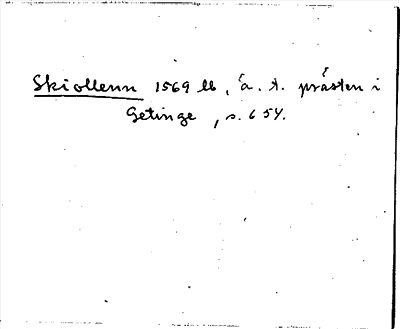 Skiollenn 1569 lb, å. t. prästen i
Getinge, s. 654.